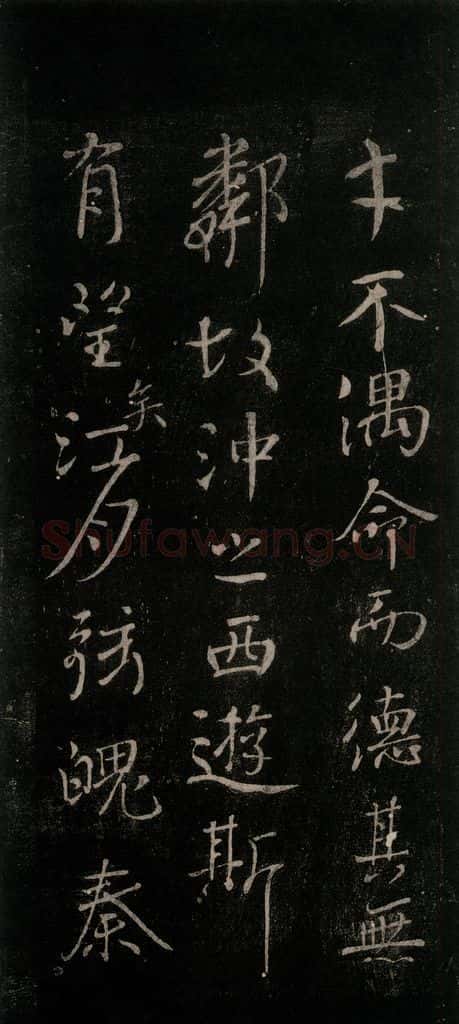 才不偶命而德其無
鄰故沖之西遊斯
有望矣江月弦魄秦
Shufawang.CN